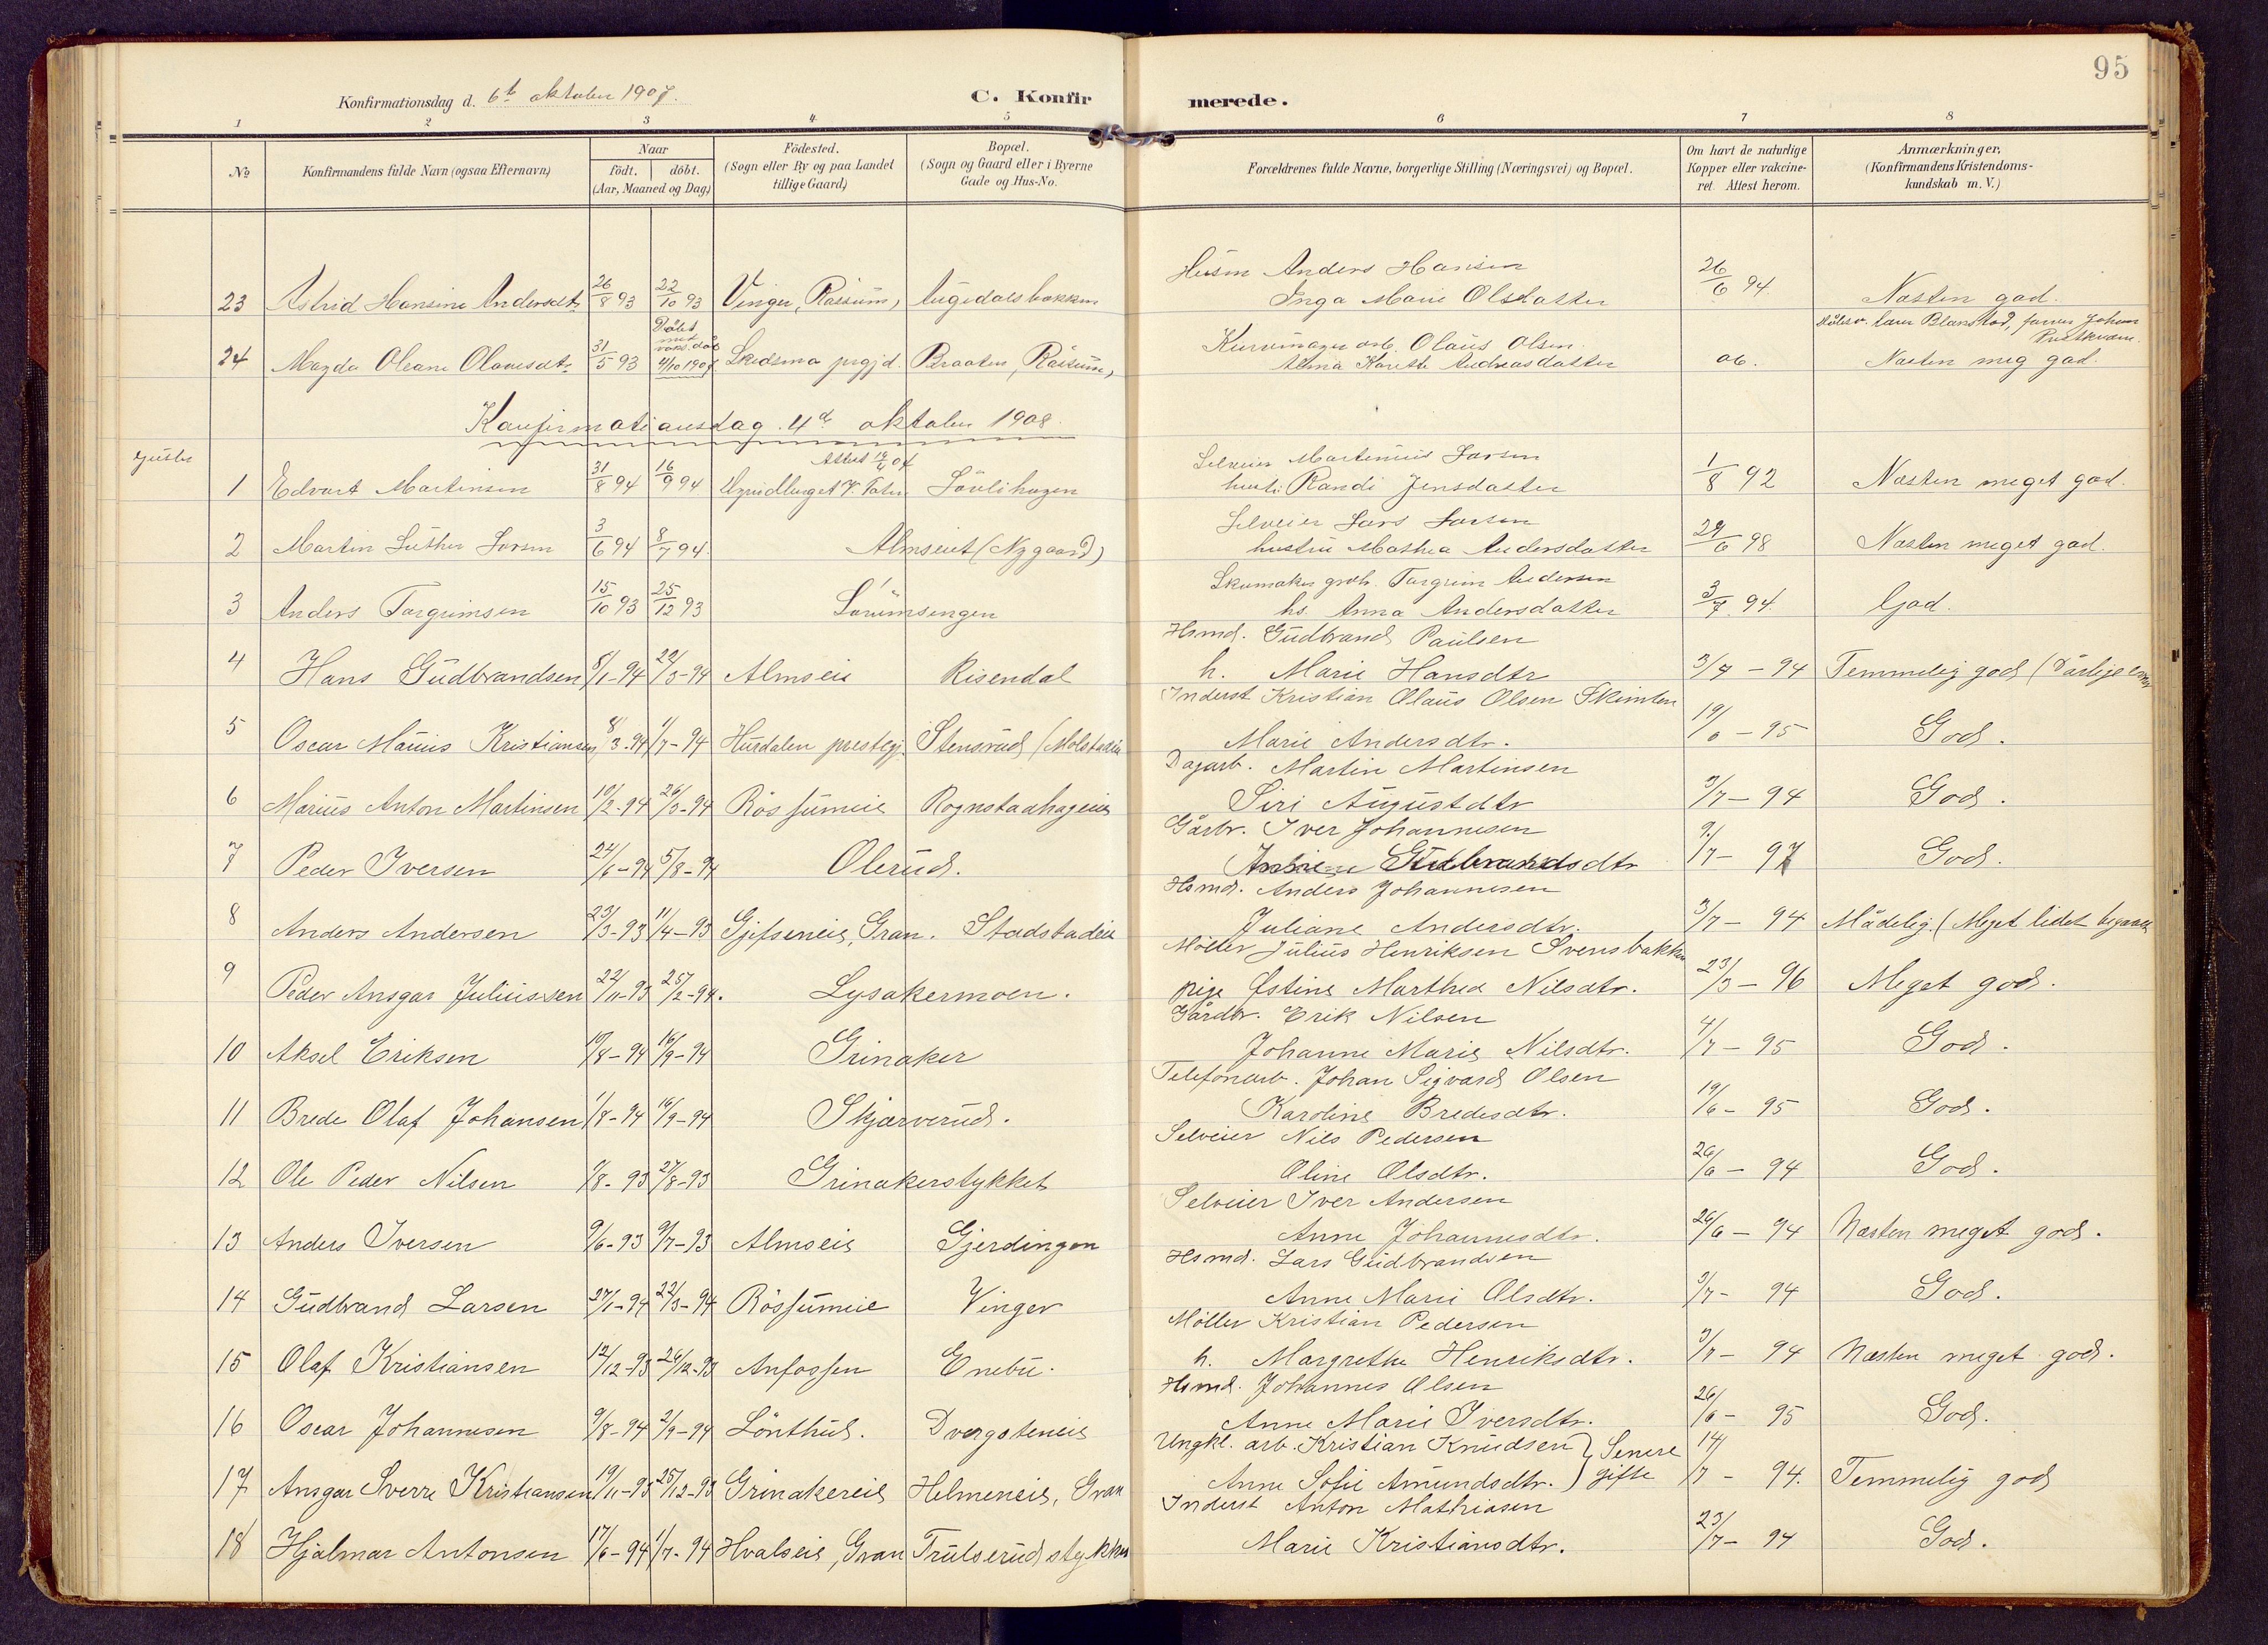 95
Konfirmationsdag d. 6te oktober 1907.
C. Konfirmerede.
1 2 3 4 5 6 7 8
No
Konfirmandens fulde Navn (ogsaa Efternavn)
Naar
født. døbt.
(Aar, Maaned og Dag)
Födested.
(Sogn eller By og paa Landet
tillige Gaard)
Bopæl.
(Sogn og Gaard eller i Byerne
Gade og Hus-No.
Forældrenes fulde Navne, borgerlige Stilling (Næringsvei) og Bopæl.
Om havt de naturlige
Kopper eller vakcine-
ret. Attest herom.
Anmærkninger,
(Konfirmandens Kristendoms-
kundskab m. V.)
Husm Anders Hansen
23 Astrid Hansine Andersdtr 26/8 93 22/10 93 Vinger, Røssum, Augedalsbakken Inga Marie Olsdatter 26/6 94 Næsten god.
Olaus Olsen
24 Magda Oleane Olausdtr 31/5 93 Döbt 4/10 1907 Skedsmo prgjd. Braaten, Røssum, Andreasdatter Næsten meg god.
Konfirmationsdag 4de oktober 1908.
Attest
Selveier Martinius Larsen
1 Edvart Martinsen 31/8 94 16/9 94 hustr. Randi Jensdatter 1/8 92 Næsten meget god.
Selveier Lars Larsen
2 Martin Luther Larsen 3/6 94 8/7 94. Almseiet (Nygaard) hustru Mathea Andersdatter 98 Næsten meget god.
Skomaker Torgrim Andersen
3 Anders Torgrimsen 15/10 93 25/12 93 Sørumsengen hs. Anna Andersdatter 3/7 94. God.
Hsmd. Gudbrand Paulsen
4 Hans Gudbrandsen 8/1-94 22/3-94 Almseie Risendal h. Marie Hansdtr 3/7 - 94 Temmelig god
Inderst Kristian Olaus Olsen Skimten
5 Oscar Mauris Kristiansen 8/3-94 1/7-94 Hurdalen prestegj. Stensrud Marie Andersdtr. 19/6 - 95 God.
Dagarb. Martin Martinsen
6 Marius Anton Martinsen 10/2-94 26/3-94 Røssumeie Rognstadhageneie Siri Augustdtr 3/7 - 94 God.
Gårbr. Iver Johannesen
7 Peder Iversen 24/6-94 5/8-94 Olerud. Gudbrandsdtr 9/7 - 97 God.
Hsmd. Anders Johannesen
8 Anders Andersen 23/3-93 11/4-93 Gjefseneie, Gran. Stadstadeie Juliane Andersdtr. 3/7 - 94 Mådelig. (Meget lidet begavet
Møller Julius Henriksen Svensbakken
9 Peder Ansgar Juliussen 22/11-93 25/2-94. Lysakermoen. pige Østine Marthea Nilsdtr. 23/3 - 96 Meget god.
Gårdbr. Erik Nilsen
10 Aksel Eriksen 10/8-94 16/9-94 Grinaker Johanne Marie Nilsdtr. 4/7 - 95 God.
Telefonarb. Johan Sigvard Olsen
11 Brede Olaf Johansen 1/8-94 16/9-94 Skjærverud. Karoline Bredesdtr. 19/6 - 95 God.
Selveier Nils Pedersen
12 Ole Peder Nilsen 1/8-93 27/8-93 Grinakerstykket Oline Olsdtr. 26/6 - 94 God.
Selveier Iver Andersen
13 Anders Iversen 9/6-93 9/7-93 Almseie Gjerdingen Anne Johannesdtr. 26/6 - 94 Næsten meget god.
Hsmd. Lars Gudbrandsen
14 Gudbrand Larsen 27/1-94 22/3-94 Røssumeie Vinger Anne Marie Olsdtr. 3/7 - 94 God.
Møller Kristian Pedersen
15 Olaf Kristiansen 12/12-93 26/12-93 Anfossen Enebu. h. Margrethe Henriksdtr. 3/7 - 94 Næsten meget god.
Hsmd. Johannes Olsen
16 Oscar Johannesen 9/8-94 2/9-94 Lönthud. Dvergsteneie Anne Marie Iversdtr. 26/6 - 95 God.
Ungkl. arb. Kristian Knudsen } Senere
17 Ansgar Sverre Kristiansen 19/11-93 25/12-93 Grinakereie Helmeneie, Gran Anne Sofie Amundsdtr. } gifte 14/7 - 94. Temmelig god
Inderst Anton Mathiasen
18 Hjalmar Antonsen 17/6-94 1/7-94 Hvalseie, Gran Trulserudstykket Marie Kristiansdtr. 23/7 - 94 God.